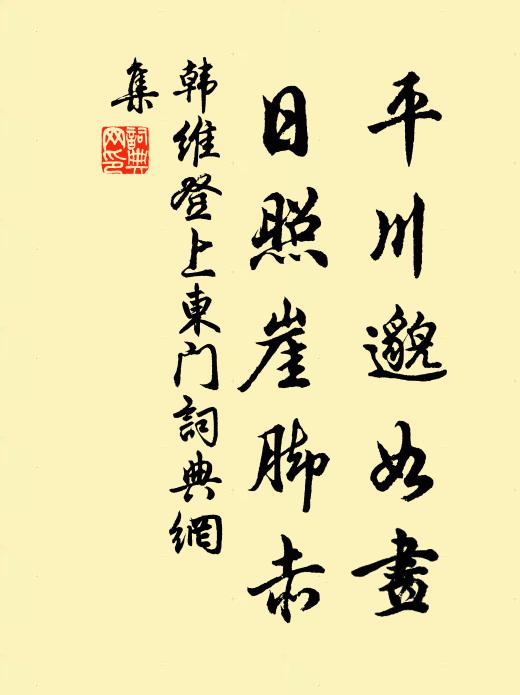 平川邈如畫
日照崖脚赤
韩维登上東门詞典網
集
詞典网印